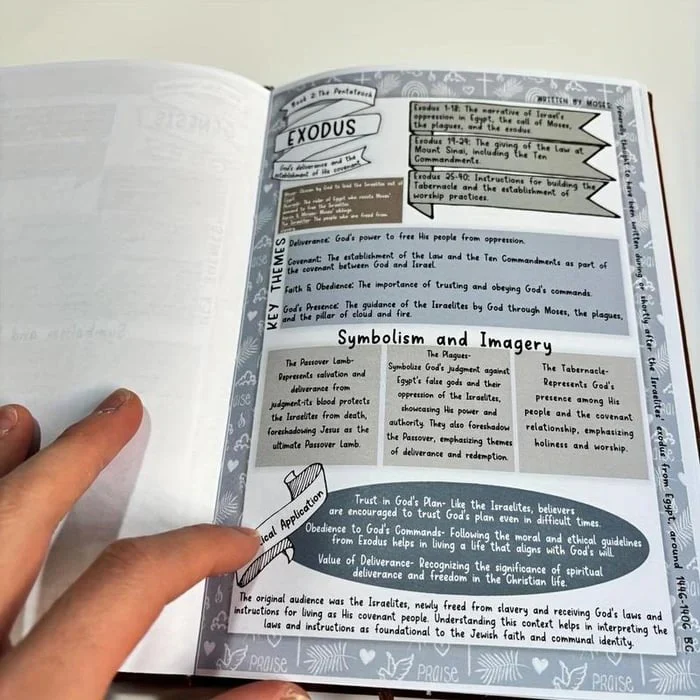 Book 2: The Pentateuch
EXODUS
God's deliverance and the
establishment of His covenant
WRITTEN BY MOSES
Exodus 1-18: The narrative of Israel's
oppression in Egypt, the call of Moses,
the plagues, and the exodus.
Exodus 19-24: The giving of the Law at
Mount Sinai, including the Ten
Commandments.
Exodus 25-40: Instructions for building the
Tabernacle and the establishment of
worship practices.
Moses: Chosen by God to lead the Israelites out of
Egypt.
Pharaoh: The ruler of Egypt who resists Moses'
demand to free the Israelites.
Aaron & Miriam: Moses' siblings.
The Israelites: The people who are freed from
KEY THEMES
Deliverance: God's power to free His people from oppression.
Covenant: The establishment of the Law and the Ten Commandments as part of
the covenant between God and Israel.
Faith & Obedience: The importance of trusting and obeying God's commands.
God's Presence: The guidance of the Israelites by God through Moses, the plagues,
and the pillar of cloud and fire.
Symbolism and Imagery
The Passover Lamb-
Represents salvation and
deliverance from
judgment-its blood protects
the Israelites from death,
foreshadowing Jesus as the
ultimate Passover Lamb.
The Plagues-
Symbolize God's judgment against
Egypt's false gods and their
oppression of the Israelites,
showcasing His power and
authority. They also foreshadow
the Passover, emphasizing themes
of deliverance and redemption.
The Tabernacle-
Represents God's
presence among His
people and the covenant
relationship, emphasizing
holiness and worship.
ical Application
Trust in God's Plan- Like the Israelites, believers
are encouraged to trust God's plan even in difficult times.
Obedience to God's Commands- Following the moral and ethical guidelines
from Exodus helps in living a life that aligns with God's will.
Value of Deliverance- Recognizing the significance of spiritual
deliverance and freedom in the Christian life.
The original audience was the Israelites, newly freed from slavery and receiving God's laws and
instructions for living as His covenant people. Understanding this context helps in interpreting the
laws and instructions as foundational to the Jewish faith and communal identity.
Generally thought to have been written during or shortly after the Israelites' exodus from Egypt, around 1446-1406 BC
PRAISE
PRAISE
PRAISE